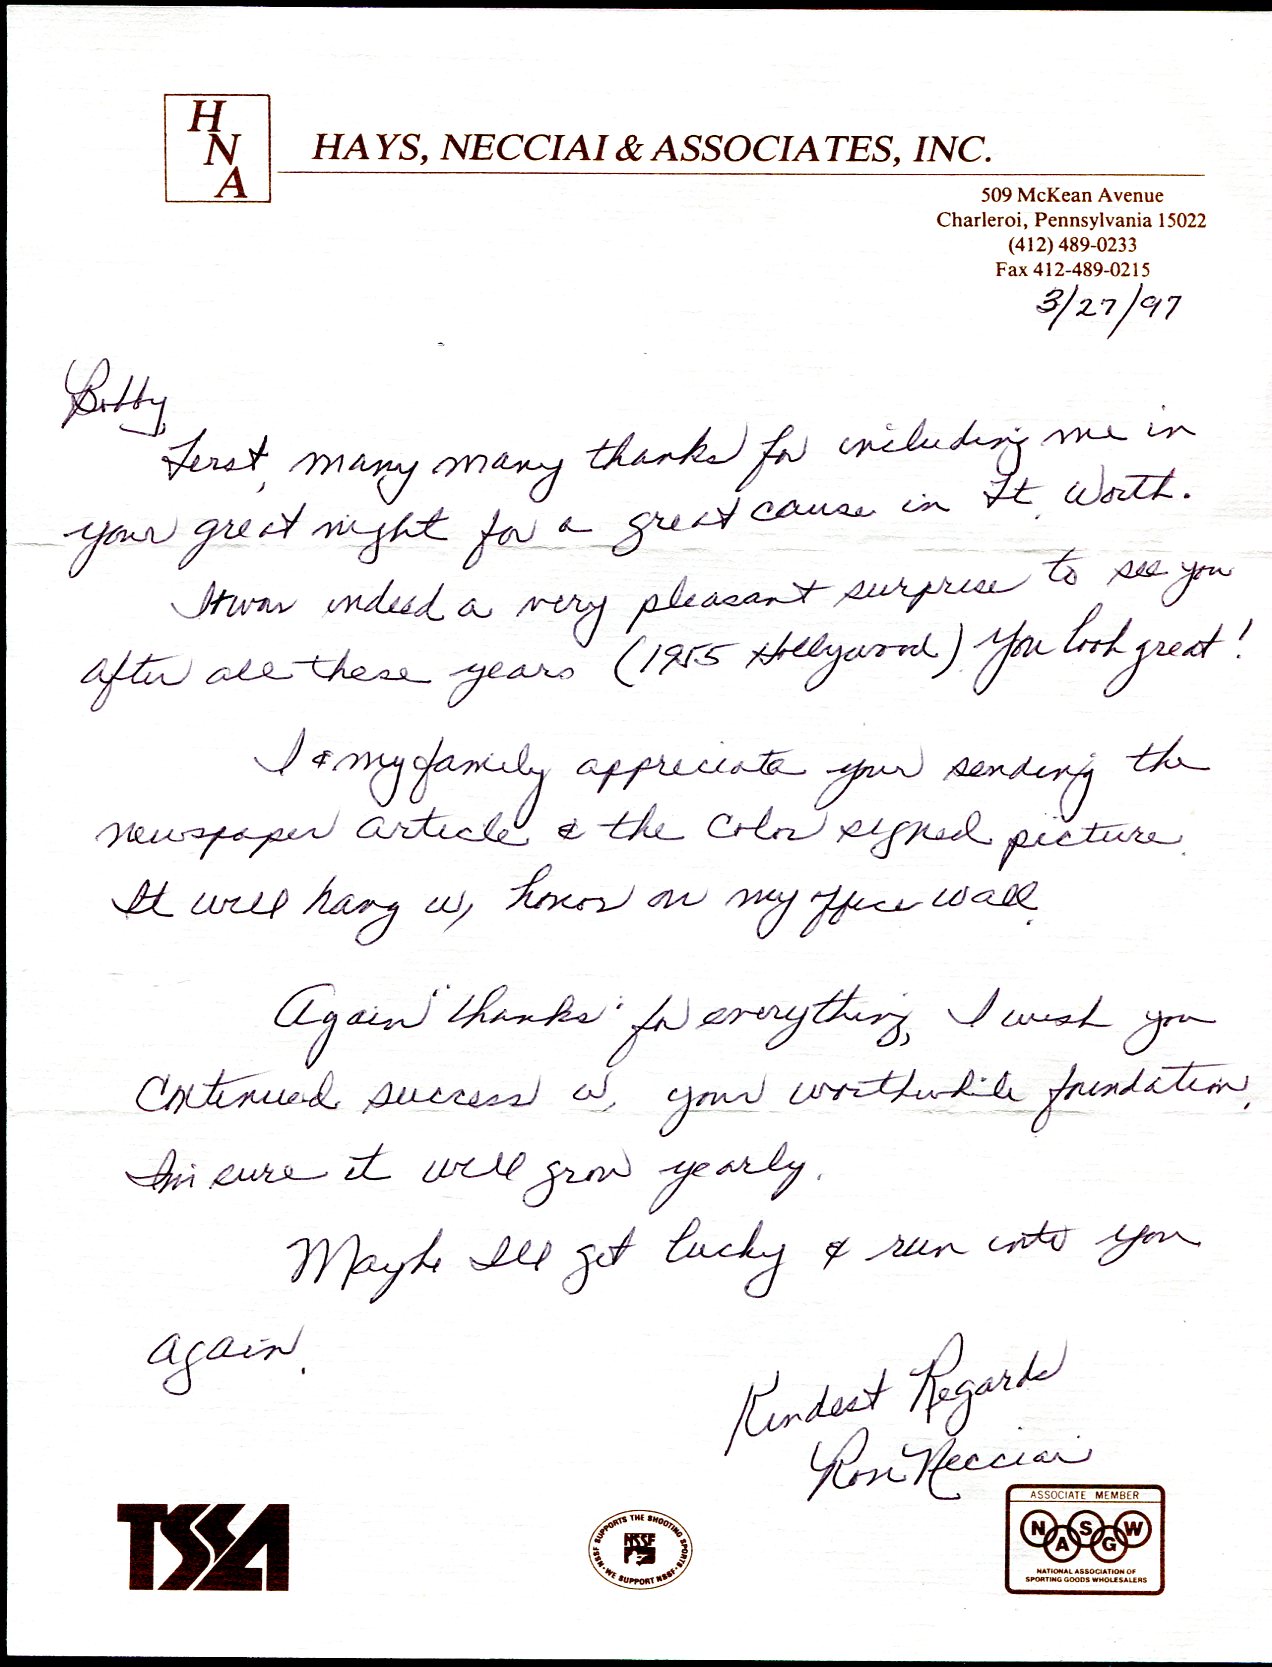 H
N
A
HAYS, NECCIAI & ASSOCIATES, INC.
509 McKean Avenue
Charleroi, Pennsylvania 15022
(412) 489-0233
Fax 412-489-0215
3/27/97
Bobby,
First, many many thanks for including me in
your great night for a great cause in Ft. Worth.
It was indeed a very pleasant surprise to see you
after all these years (1955 Hollywood). You look great!
I & my family appreciate your sending the
newspaper article & the color signed picture.
It will hang w/ honor on my office wall.
Again "thanks" for everything, I wish you
continued success w/ your worthwhile foundation.
I'm sure it will grow yearly.
Maybe I'll get lucky & run into you
again.
Kindest Regards
Ron Necciai
TSSA
NSSF SUPPORTS THE SHOOTING SPORTS
NSSF
WE SUPPORT NSSF
ASSOCIATE MEMBER
NASGW
NATIONAL ASSOCIATION OF
SPORTING GOODS WHOLESALERS